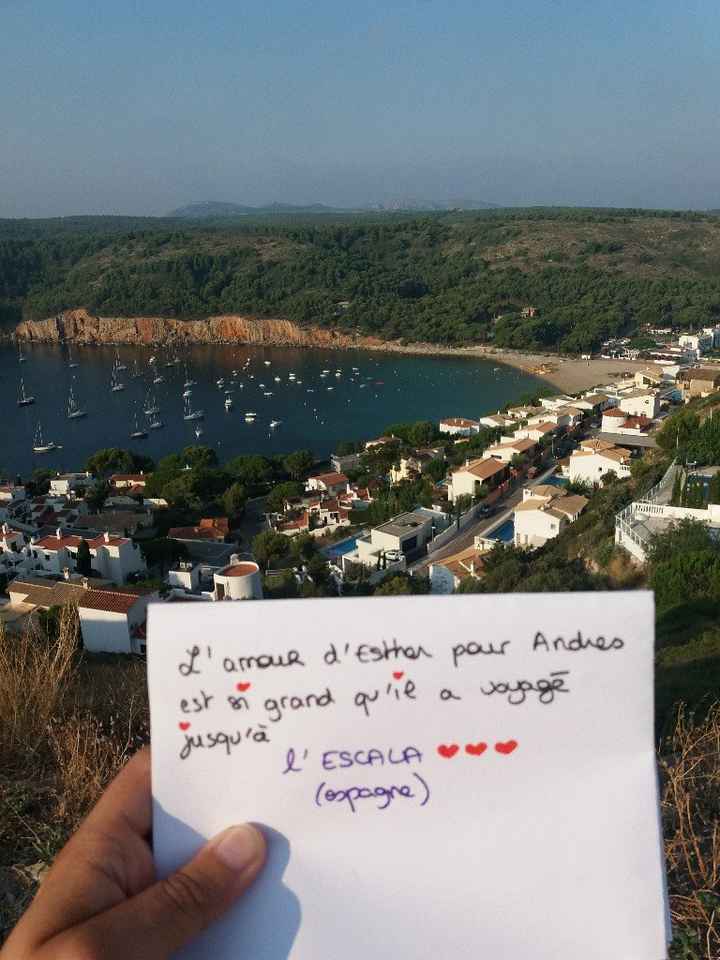 L'amour d'Esther pour Andres
est si grand qu'il a voyagé
jusqu'à
l'ESCALA ♥♥♥
(espagne)